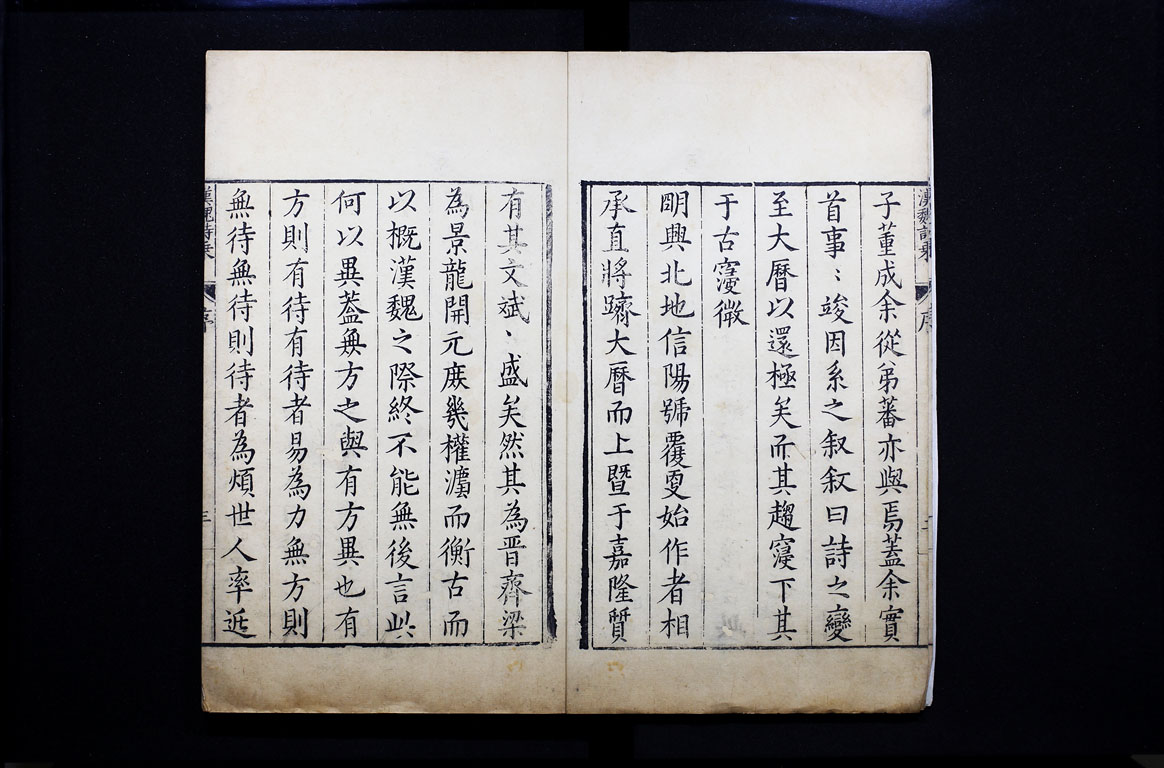 漢魏詩乘
序
子董成余從弟蕃亦與焉蓋余實
首事〻竣因系之叙叙曰詩之變
至大曆以還極矣而其趨寖下其
于古寖微
明興北地信陽號覆更始作者相
承直將躋大曆而上暨于嘉隆質
有其文斌〻盛矣然其為晋齊梁
為景龍開元庶幾權濃而衡古而
以概漢魏之際終不能無後言此
何以異蓋無方之與有方異也有
方則有待有待者易為力無方則
無待無待則待者為煩世人率近
漢魏詩乘
序
三